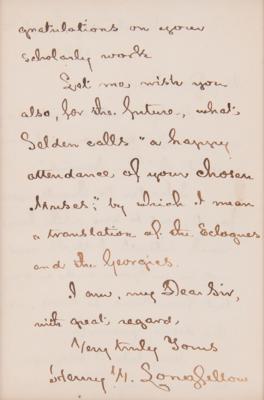 gratulations on your
scholarly work
Let me wish you
also, for the future, what
Selden calls "a happy
attendance of your chosen
Muses;" by which I mean
a translation of the Eclogues
and the Georgics.
I am, my Dear Sir,
with great regard,
Very truly Yours
Henry W. Longfellow